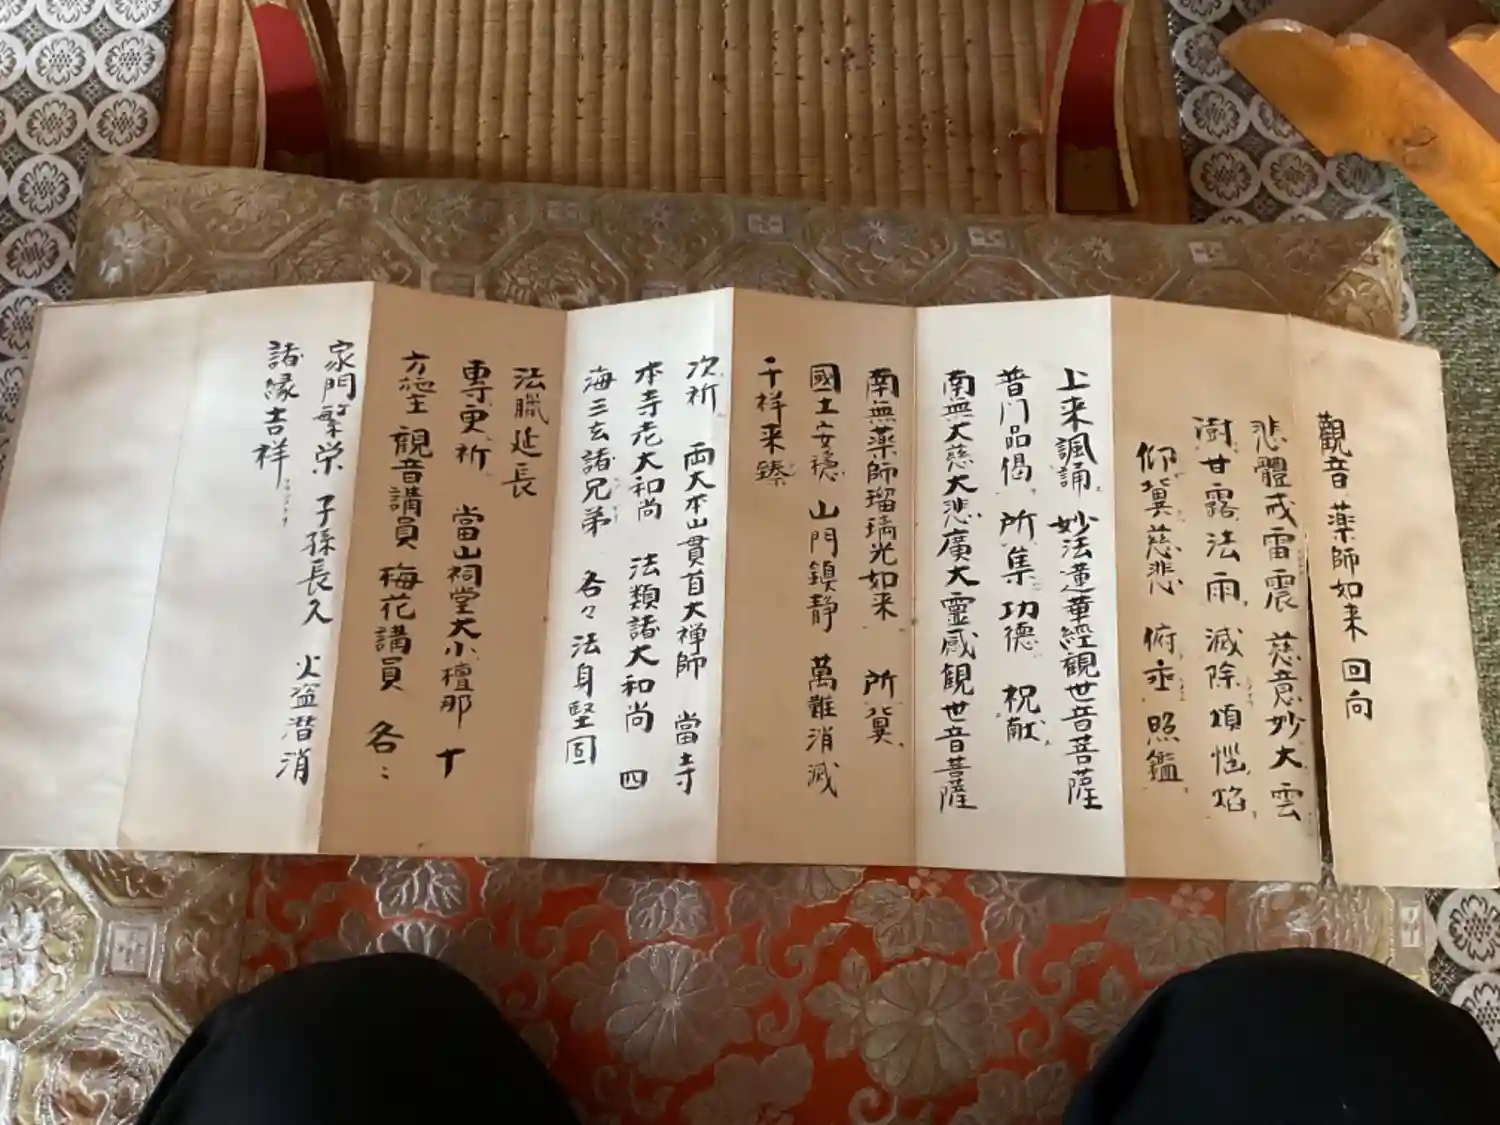 觀音薬師如来回向
悲體戒雷震　慈意妙大雲
澍甘露法雨　滅除煩惱焰
仰冀慈悲　俯垂照鑑
上来諷誦　妙法蓮華經觀世音菩薩
普门品偈　所集功德　祝献
南無大慈大悲廣大靈感観世音菩薩
南無薬師瑠璃光如来　所冀
國土安穏　山門鎮静　萬難消滅
千祥来臻
次祈　両大本山貫首大禅師　當寺
本寺老大和尚　法類諸大和尚　四
海三玄諸兄弟　各々法身堅固
法臘延長
專更祈　當山祠堂大小檀那　十
方施主　観音講員　梅花講員　各〻
家門繁栄　子孫長久　火盗潜消
諸縁吉祥